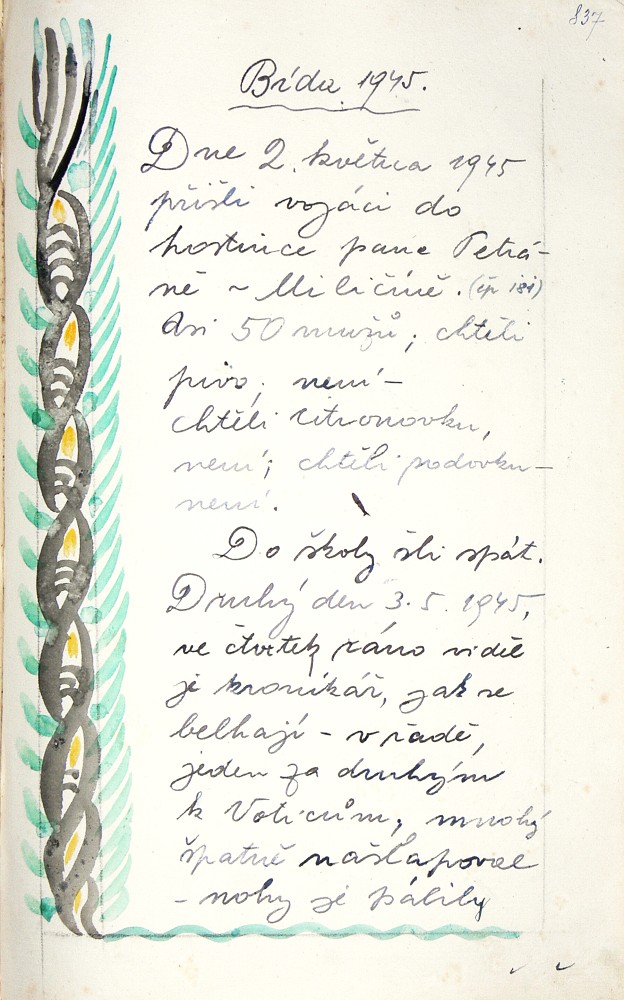 837
Bída 1945.
Dne 2. května 1945
přišli vojáci do
hostince pana Petrá-
ně v Miličíně. (čp. 181)
Asi 50 mužů; chtěli
pivo; není –
chtěli citronovku,
není; chtěli sodovku –
není.
Do školy šli spát.
Druhý den 3. 5. 1945,
ve čtvrtek ráno viděl
je kronikář, jak se
belhají – v řadě,
jeden za druhým
k Voticům; mnohý
špatně našlapoval
– nohy je pálily